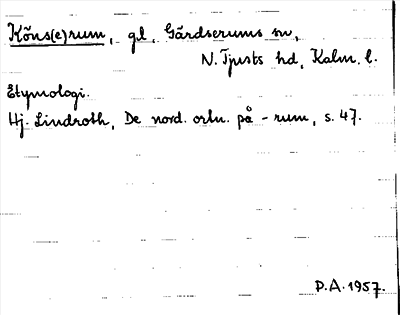 Kõns(e)rum, gl, Gärdserums sn,
N. Tjusts hd, Kalm. l.
Etymologi.
Hj. Lindroth, De nord. ortn. på -rum, s. 47.
P.A. 1957.